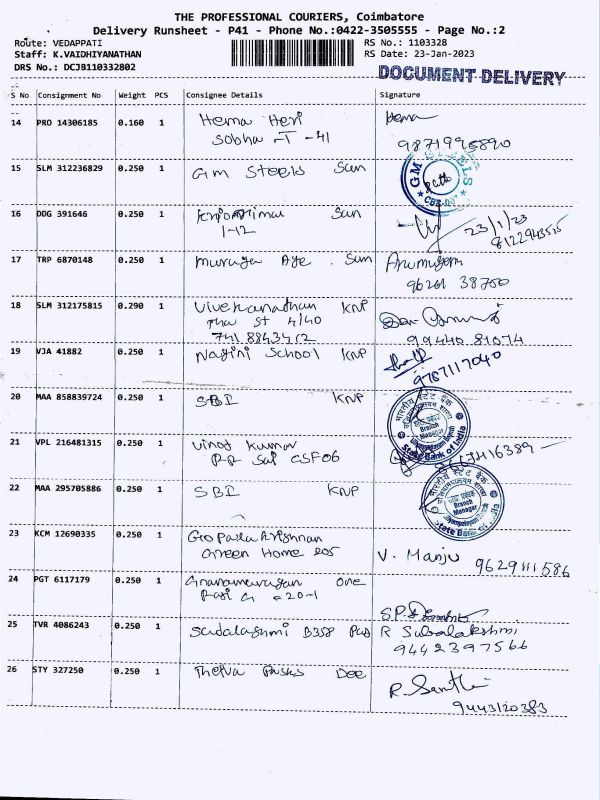 THE PROFESSIONAL COURIERS, Coimbatore
Delivery Runsheet - P41 - Phone No.:0422-3505555 - Page No.:2
Route: VEDAPPATI RS No.: 1103328
Staff: K.VAIDHIYANATHAN RS Date: 23-Jan-2023
DRS No.: DCJB110332802
DOCUMENT DELIVERY
S No Consignment No Weight PCS Consignee Details Signature
14 PRO 14306185 0.160 1 Hema Heri Hema
Sobha -T -41 9871995890
15 SLM 312236829 0.250 1 GM Steels Sun
GM STEELS
16 DDG 391646 0.250 1 Sun
1-12 23/1/23
8122943515
17 TRP 6870148 0.250 1 Muruga Age. Sun Arumugam
96261 38700
18 SLM 312175815 0.290 1 Vivekanathan KNP
St 4/40
741 8843412 99440 81074
19 VJA 41882 0.250 1 Nagini School KNP
9787117040
20 MAA 858839724 0.250 1 SBI KNP
भारतीय स्टेट बैंक
Branch Manager
State Bank of India
21 VPL 216481315 0.250 1 Vinoj Kumar
Sai CSF06
22 MAA 295705886 0.250 1 SBI KNP
भारतीय स्टेट बैंक
Branch Manager
State Bank of India
23 KCM 12690335 0.250 1 Gopalakrishnan
Green Home 205 V. Manju 9629111586
24 PGT 6117179 0.250 1 Gnanamurugan One
25 TVR 4086243 0.250 1 B358 R Subalakshmi
9442397566
26 STY 327250 0.250 1 Dee R. Santhi
9443120383